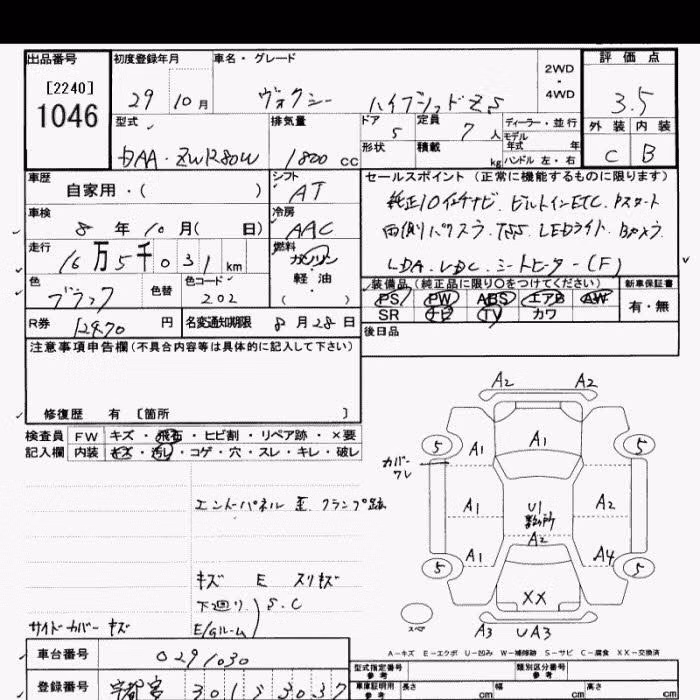 出品番号
[2240]
1046
初度登録年月
29 10月
車名・グレード
ヴォクシー ハイブリッドZS
2WD
・
4WD
評価点
3.5
外装 内装
C B
型式
DAA-ZWR80W
排気量
1800 cc
ドア
5
定員
7 人
形状
積載
kg
ディーラー・並行
モデル
年式 年
ハンドル 左・右
車歴
自家用・( )
シフト
AT
車検
8 年 10 月( 日)
冷房
AAC
走行
16万5千031 km
燃料
ガソリン
・
軽油
・
( )
色
ブラック
色替
色コード
202
R券
12970 円
名変通知期限
8月28日
セールスポイント(正常に機能するものに限ります)
純正10インチナビ.ビルトインETC.Pスタート
両側パワスラ.TSS.LEDライト.Bカメラ
LDA.VDC.シートヒーター(F)
装備品(純正品に限り○をつけてください)
PS PW ABS エアB AW
SR ナビ TV カワ
新車保証書
有・無
後日品
注意事項申告欄(不具合内容等は具体的に記入して下さい)
修復歴 有 〔箇所 〕
検査員
記入欄
FW キズ・飛石・ヒビ割・リペア跡・×要
内装 キズ・汚レ・コゲ・穴・スレ・キレ・破レ
エンドパネル 歪 クランプ跡
キズ E スリキズ
下廻り
E/Gルーム
S.C
サイドカバー キズ
A2 A2
5 5
カバー
ワレ
A1 A1
A1 U1 A2
A2
A1 A4
5 5
XX
スペア
A3 UA3
A-キズ E-エクボ U-凹み W-補修跡 S-サビ C-腐食 XX-交換済
車台番号
0291030
登録番号
宇都宮 301 3037
型式指定番号
参考
類別区分番号
参考
車庫証明用
参考
長さ cm 幅 cm 高さ cm